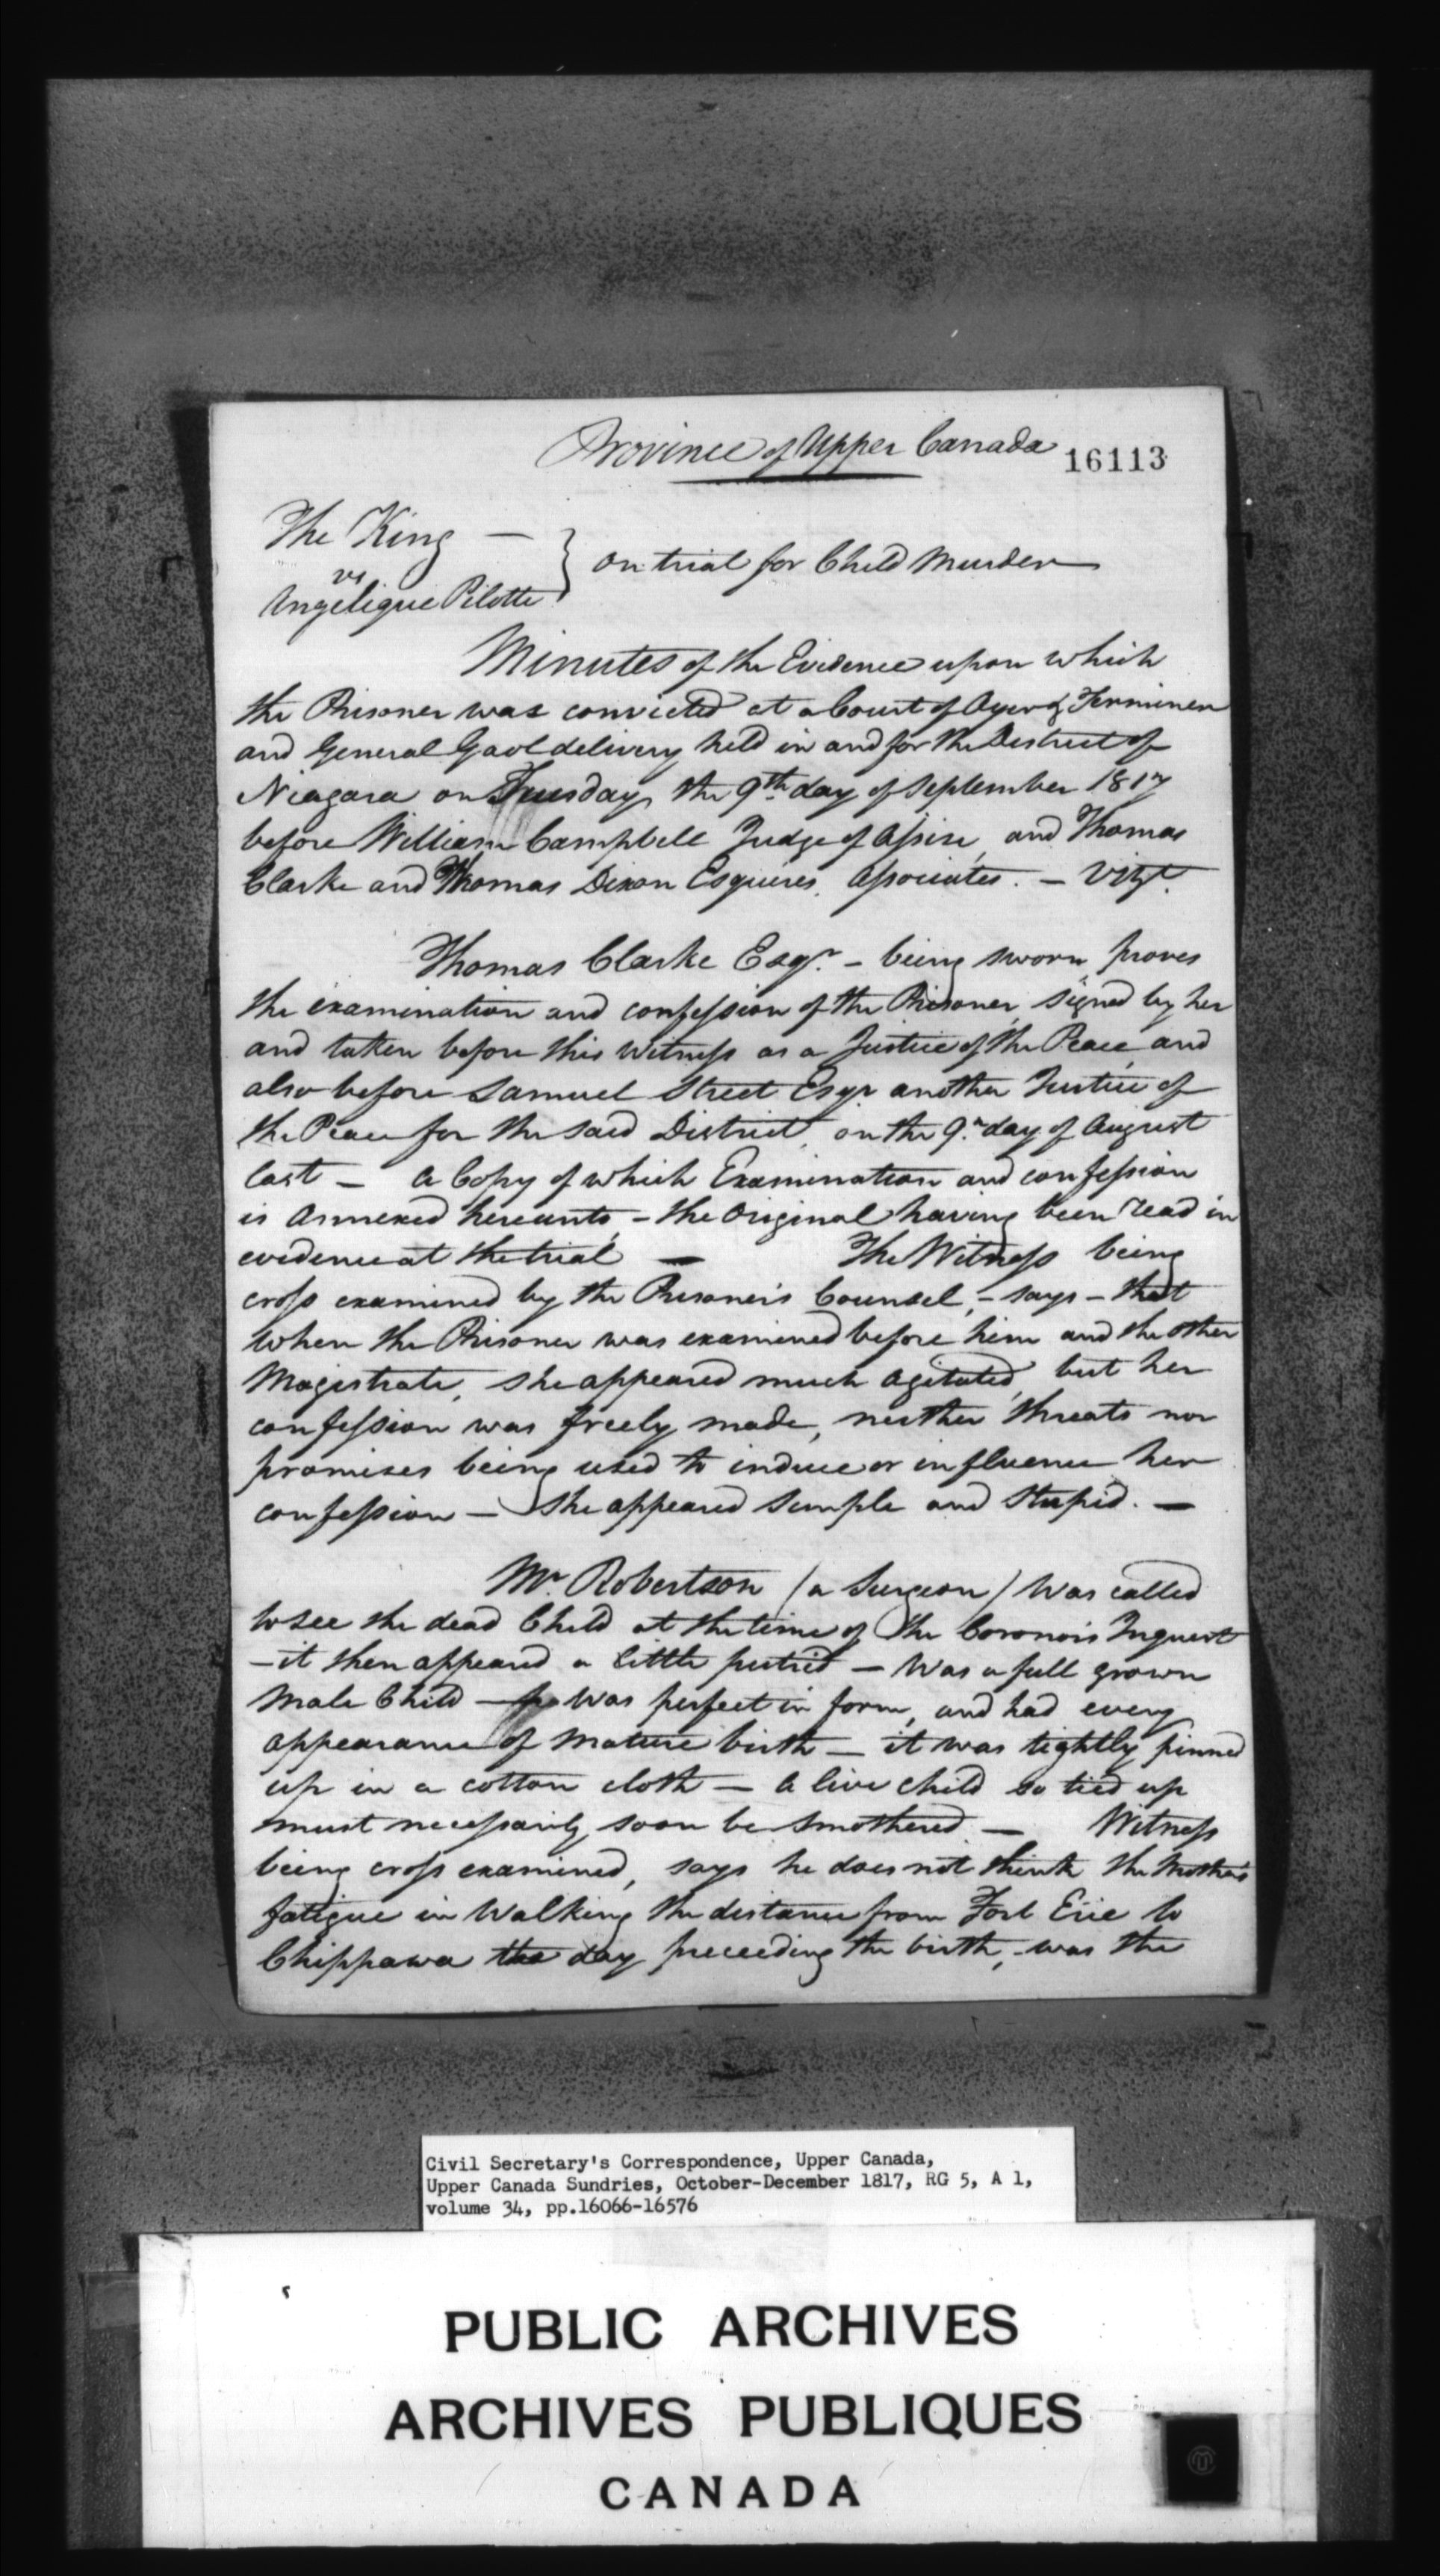 Province of Upper Canada 16113
The King —
vs
Angelique Pilotte } on trial for Child Murder
Minutes of the Evidence upon which
the Prisoner was convicted at a Court of Oyer & Terminer
and General Gaol delivery held in and for the District of
Niagara on Tuesday the 9th day of September 1817
before William Campbell Judge of Assize, and Thomas
Clarke and Thomas Dixon Esquires, Associates. — Vizt.
Thomas Clarke Esqr. – being sworn, proves
the examination and confession of the Prisoner, signed by her
and taken before this Witness as a Justice of the Peace, and
also before Samuel Street Esqr another Justice of
the Peace for the said District, on the 9th day of August
last — A Copy of which Examination and confession
is annexed hereunto, – the Original having been read in
evidence at the trial — The Witness being
cross examined by the Prisoner's Counsel, – says – that
when the Prisoner was examined before him and the other
Magistrate, she appeared much agitated, but her
confession was freely made, neither threats nor
promises being used to induce or influence her
confession — She appeared simple and stupid. —
Mr. Robertson (a Surgeon) Was called
to see the dead Child at the time of the Coroner's Inquest
– it then appeared a little putrid — Was a full grown
Male Child — was perfect in form, and had every
appearance of mature birth — it was tightly pinned
up in a cotton cloth — A live child so tied up
must necessarily soon be smothered — Witness
being cross examined, says he does not think the Mother's
fatigue in Walking the distance from Fort Erie to
Chippawa the day preceeding the birth, was the
Civil Secretary's Correspondence, Upper Canada,
Upper Canada Sundries, October-December 1817, RG 5, A 1,
volume 34, pp.16066-16576
PUBLIC ARCHIVES
ARCHIVES PUBLIQUES
CANADA